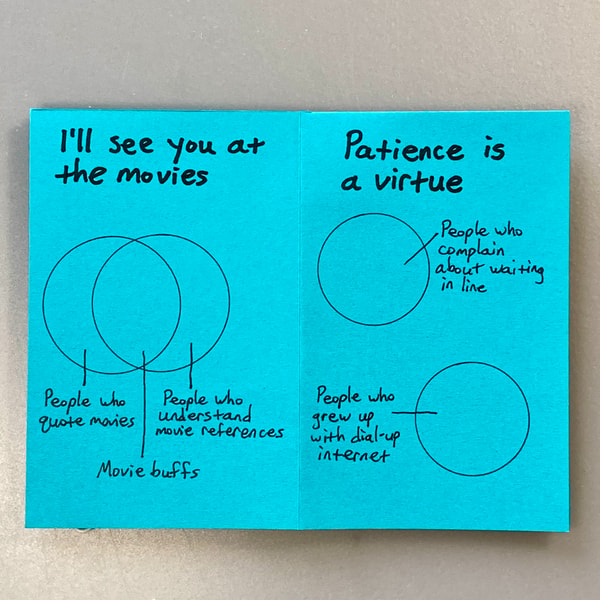 I'll see you at
the movies
People who
quote movies
People who
understand
movie references
Movie buffs
Patience is
a virtue
People who
complain
about waiting
in line
People who
grew up
with dial-up
internet